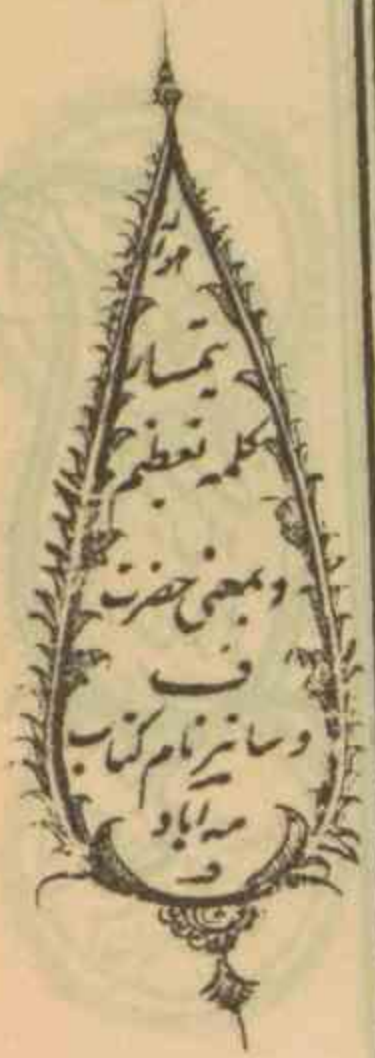 تیمسار
کلمه تعظیم
و بمعنی حضرت
ف
وساتیر نام کتاب
مه آباد
ف